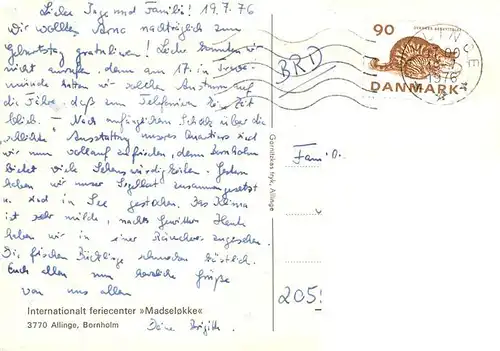 Liebe Inge und Familie! 19.7.76
Wir wollen Parna nachträglich zum
Geburtstag gratulieren! Leider konnten wir
nicht anrufen, denn am 17. in Trave-
münde hatten wir solchen Ansturm auf
die Fähre, daß zum Telefonieren die Zeit
blieb. – Nach anfänglichem Schock über die
"schlichte" Ausstattung unseres Quartiers sind
wir nun vollauf zufrieden, denn Bornholm
bietet viele Sehenswürdigkeiten. Gestern
haben wir unser Segelboot zusammengesetzt
u. sind in See gestochen. Das Klima
ist sehr milde, nachts Gewitter. Heute
haben wir in einer Räucherei zugesehen.
Die frischen Bücklinge schmecken köstlich.
Euch allen nun herzliche Grüße
von uns allen
Deine Brigitte
Internationalt feriecenter »Madseløkke«
3770 Allinge, Bornholm
Gornitzkas tryk, Allinge
BRD
90
DANMARK
1976
Fam. O.
205!